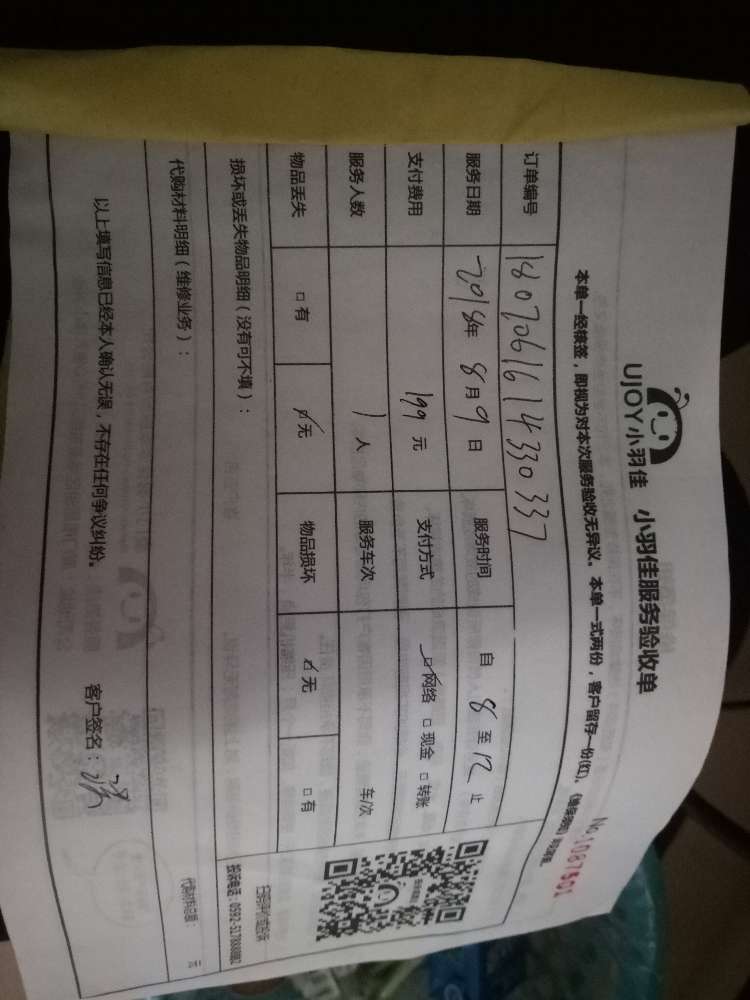 UJOY小羽佳 小羽佳服务验收单
No.1087501
本单一经核签，即视为对本次服务验收无异议。本单一式两份，客户留存一份(红)。
订单编号 1807061614330337
服务日期 2018年 8月9日 服务时间 自 8 至 12 止
支付费用 199 元 支付方式 ☑网络 □现金 □转账
服务人数 1 人 服务车次 车/次
物品丢失 □有 ☑无 物品损坏 ☑无 □有
损坏或丢失物品明细（没有可不填）：
扫码评价或投诉
投诉电话：0592-5178888转2
代购材料明细（维修业务）：
代购材料总额： 元
以上填写信息已经本人确认无误，不存在任何争议纠纷。 客户签名：